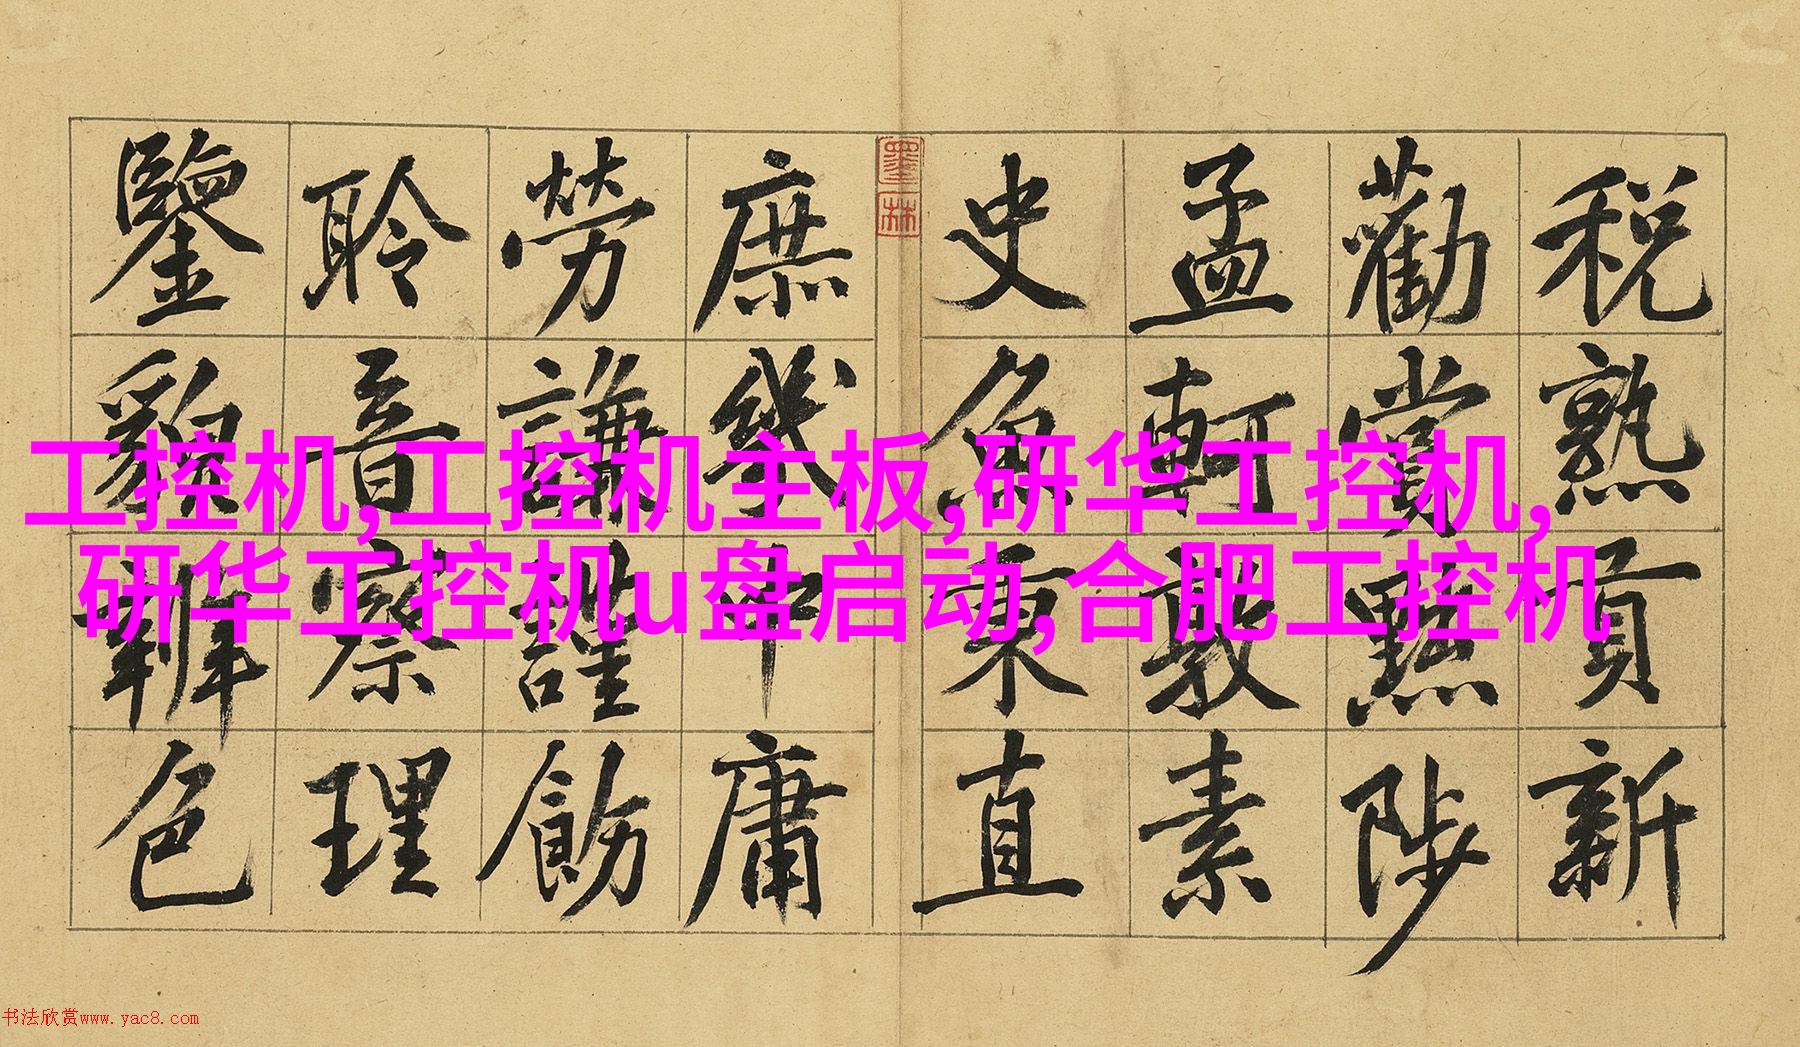 税熟貢新
勸賞黜陟
孟軻敦素
史魚秉直
墨林
庶幾中庸
勞謙謹飭
聆音察理
鑒貌辨色
工控机,工控机主板,研华工控机,
研华工控机u盘启动,合肥工控机
书法欣赏www.yac8.com